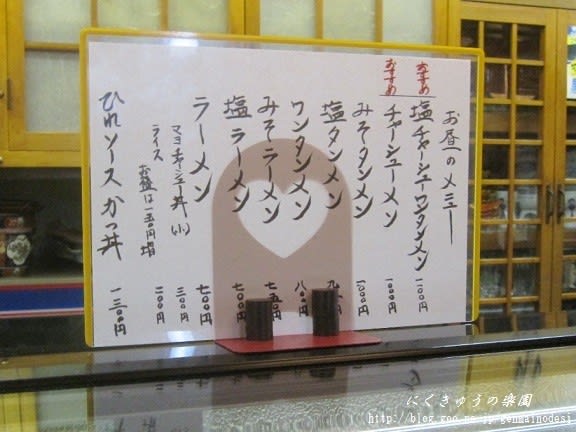 お昼のメニュー
おすすめ
塩チャーシューワンタンメン 一一〇〇円
おすすめ
チャーシューメン 一〇〇〇円
みそタンメン 一〇〇〇円
塩タンメン
ワンタンメン 八〇〇円
みそラーメン 七五〇円
塩ラーメン 七〇〇円
ラーメン 七〇〇円
マヨチャーシュー丼(小) 三〇〇円
ライス 二〇〇円
お盆は一五〇円増
ひれソースかつ丼 一三〇〇円
にくきゅうの楽園
http://blog.goo.ne.jp/genmainodesi